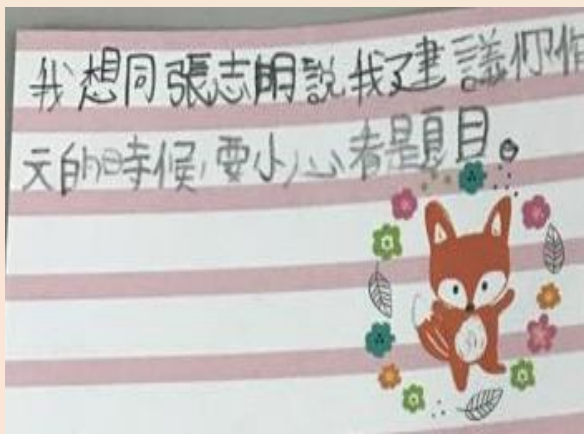 我想同張志明說我建議你作
文的時候,要小心看題目。